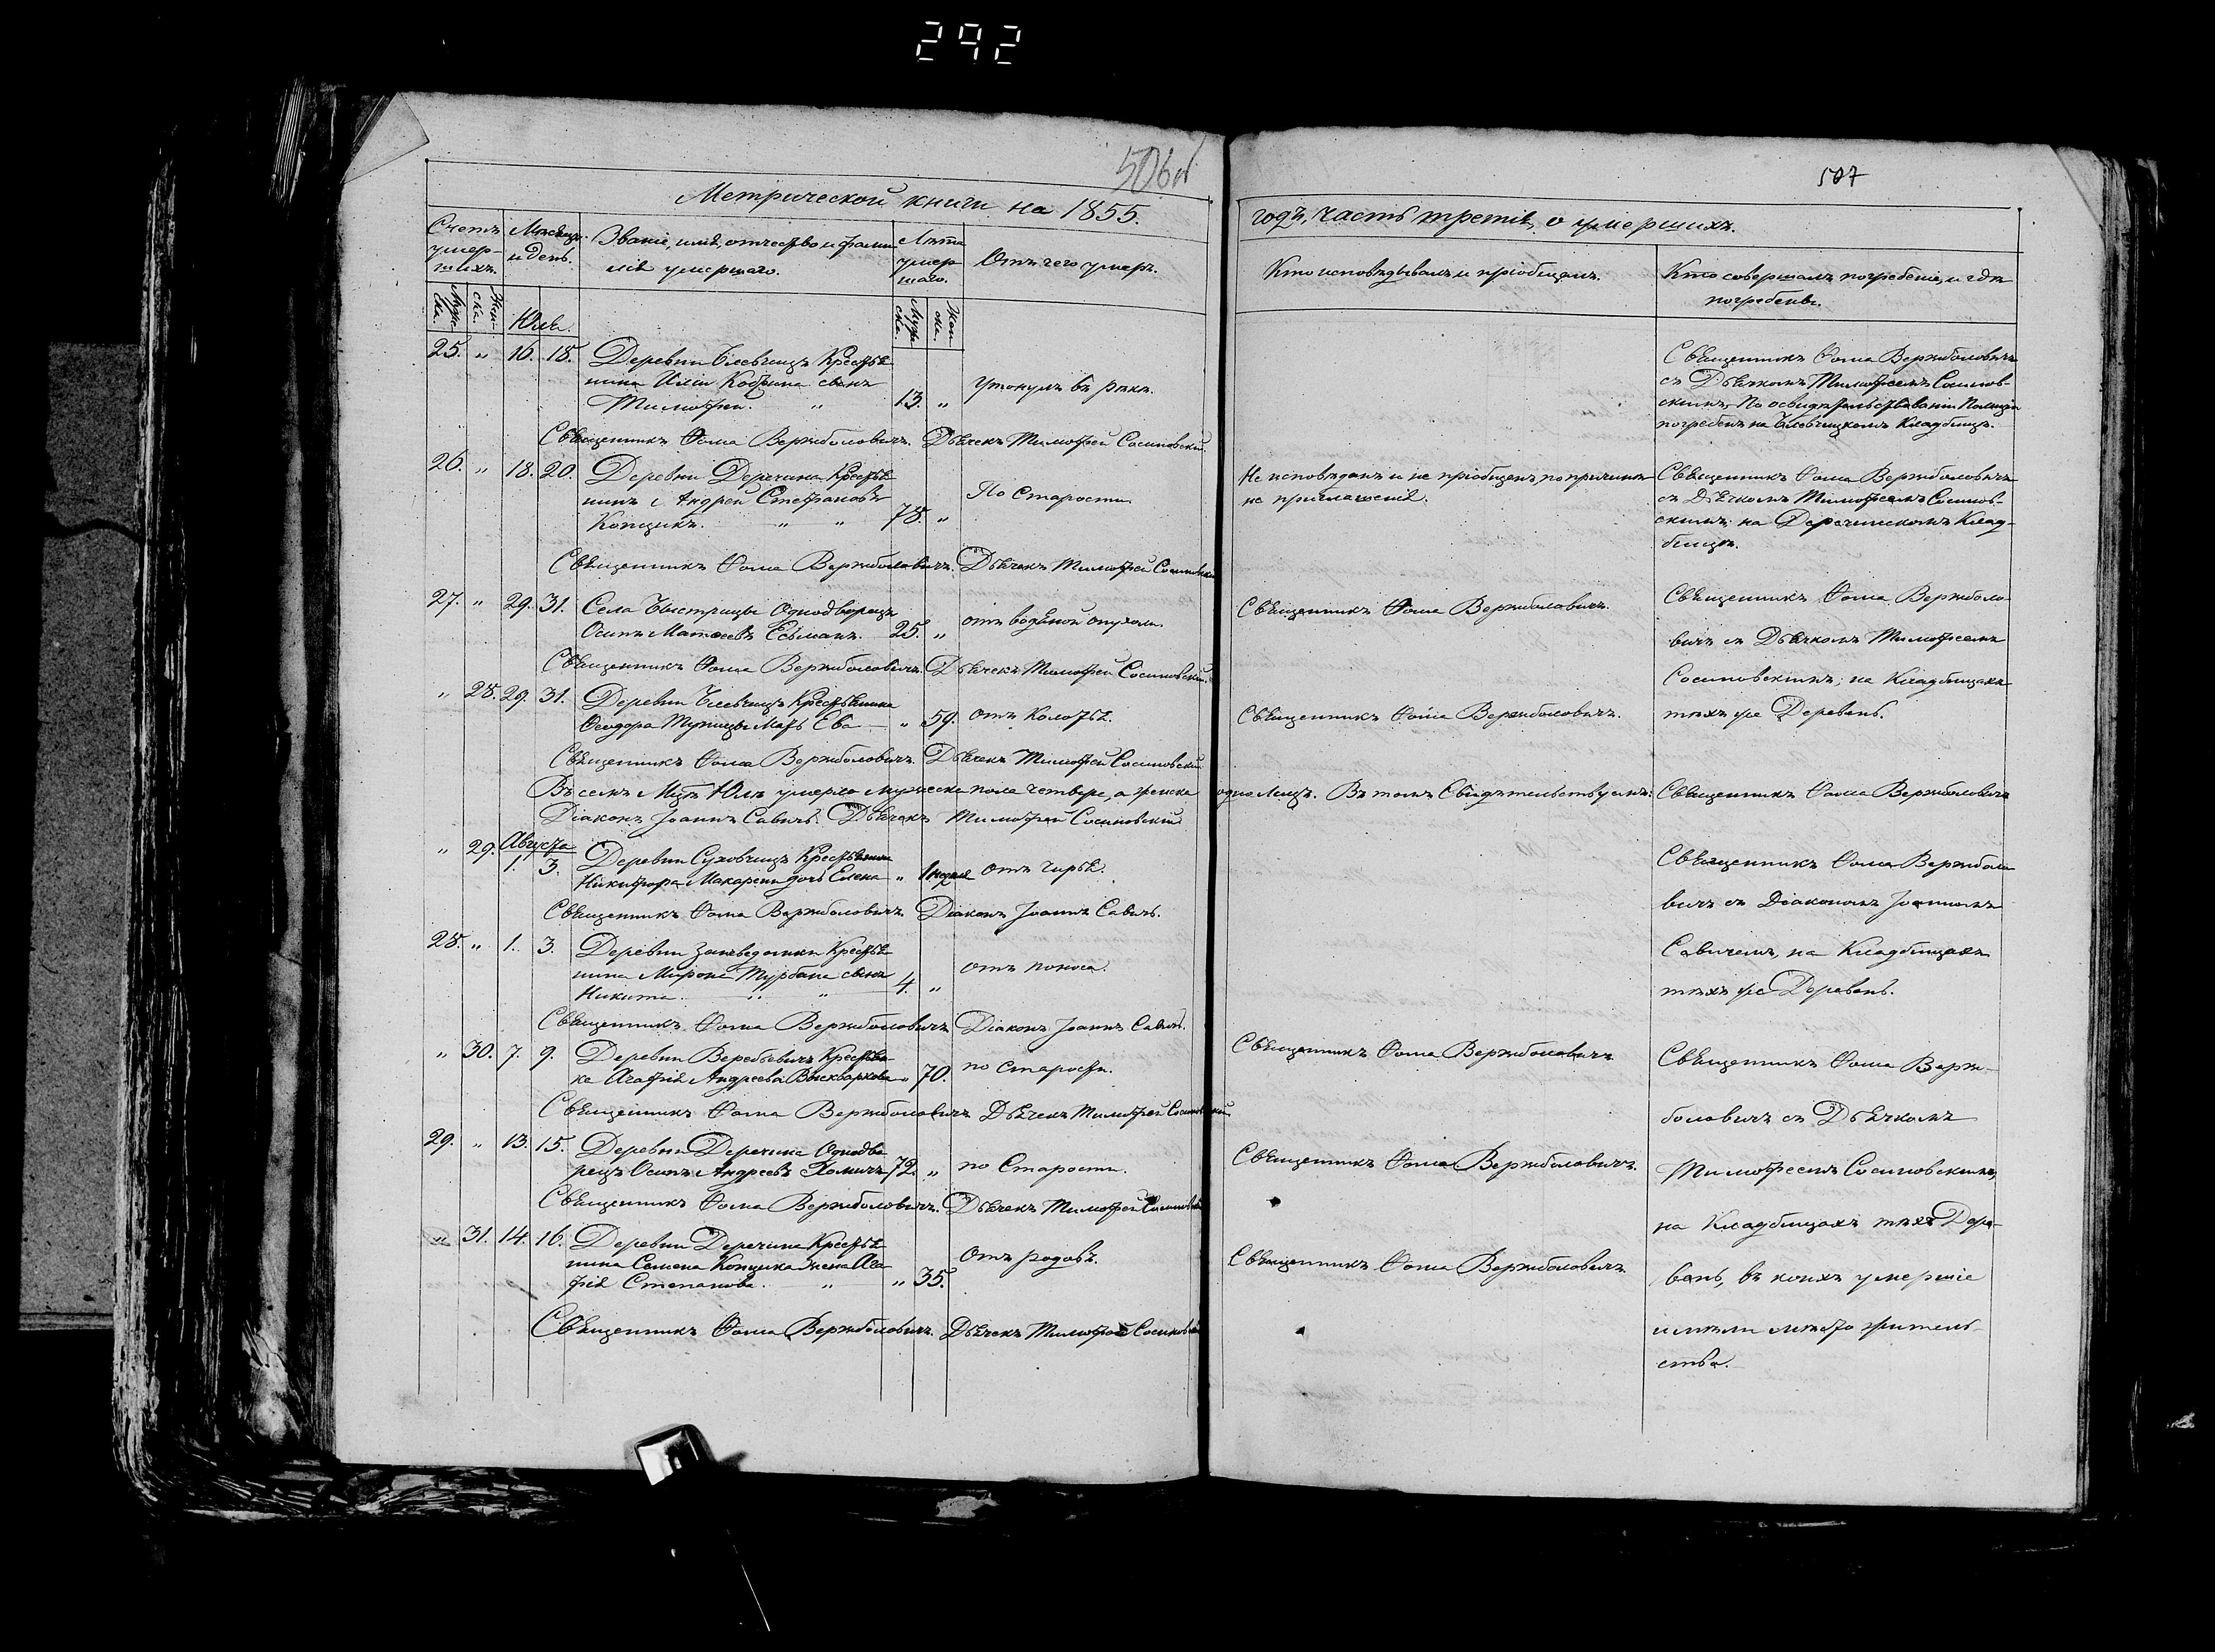 292
506об
507
Метрической книги на 1855.
годъ, часть третія, о умершихъ.
Счетъ умер-шихъ.
Мѣсяцъ и день.
Званіе, имя, отчество и фами-
лія умершаго.
Лѣта умер-шаго.
Отъ чего умеръ.
Кто исповѣдывалъ и пріобщалъ.
Кто совершалъ погребеніе, и гдѣ
погребены.
Муж-ска.
Жен-ска.
Юля.
Муж-ска.
Жен-ска.
25. „ 16. 18. Деревни Крестья-
нина Иліи сынъ
Тимофей. „ 13. „ утонулъ въ рѣкѣ.
Священникъ Ѳома Вержболовичъ
съ Дьячкомъ Тимофеемъ Сосинов-
скимъ, По освидѣтельствованіи Полиціи
погребенъ на Кладбищѣ.
Священникъ Ѳома Вержболовичъ. Дьячекъ Тимофей Сосиновскій.
26. „ 18. 20. Деревни Деречина Крестья-
нинъ Андрей Стефановъ
Копцикъ. „ „ 78. „ По Старости
Не исповѣданъ и не пріобщенъ по причинѣ
не приглашенія.
Священникъ Ѳома Вержболовичъ
съ Дьячкомъ Тимофеемъ Сосинов-
скимъ; на Деречинскомъ Клад-
бищѣ.
Священникъ Ѳома Вержболовичъ. Дьячекъ Тимофей Сосиновскій
27. „ 29. 31. Села Быстрицы Однодворецъ
Осипъ Матѳеевъ Есьманъ. 25. „ отъ водяной опухоли.
Священникъ Ѳома Вержболовичъ.
Священникъ Ѳома Вержболо-
вичъ съ Дьячкомъ Тимофеемъ
Сосиновскимъ; на Кладбищахъ
тѣхъ же Деревень.
Священникъ Ѳома Вержболовичъ. Дьячекъ Тимофей Сосиновскій.
„ 28. 29. 31. Деревни Крестьянина
Ѳеодора Мать Ева „ 59. отъ Колотья.
Священникъ Ѳома Вержболовичъ.
Священникъ Ѳома Вержболовичъ. Дьячекъ Тимофей Сосиновскій
Въ семъ Мцѣ Юлѣ умерло мужеска пола четверо, а женска одно лицъ. Въ томъ Свидѣтельствуемъ: Священникъ Ѳома Вержболовичъ
Діаконъ Іоаннъ Савичъ. Дьячекъ Тимофей Сосиновскій
Августа
„ 29. 1. 3. Деревни Суховчицъ Крестьянина
Никифора Макарени дочь Елена „ 1 недѣля отъ чирья.
Священникъ Ѳома Вержболо-
вичъ съ Діакономъ Іоанномъ
Савичемъ, на Кладбищахъ
тѣхъ же Деревень.
Священникъ Ѳома Вержболовичъ. Діаконъ Іоаннъ Савичъ.
28. „ 1. 3. Деревни Крестья-
нина Мирона Турбана сынъ
Никита. „ „ 4. „ отъ поноса.
Священникъ Ѳома Вержболовичъ Діаконъ Іоаннъ Савичъ.
„ 30. 7. 9. Деревни Веребьевичъ Крестьян-
ка Агафія Андреева „ 70. по старости.
Священникъ Ѳома Вержболовичъ
Священникъ Ѳома Верж-
боловичъ съ Дьячкомъ
Тимофеемъ Сосиновскимъ,
на Кладбищахъ тѣхъ Дере-
вень, въ коихъ умершіе
имѣли мѣсто житель-
ства.
Священникъ Ѳома Вержболовичъ Дьячекъ Тимофей Сосиновскій
29. „ 13. 15. Деревни Деречина Однодво-
рецъ Осипъ Андреевъ Хомичъ 72. „ по Старости.
Священникъ Ѳома Вержболовичъ.
Священникъ Ѳома Вержболовичъ. Дьячекъ Тимофей Сосиновскій
„ 31. 14. 16. Деревни Деречина Крестья-
нина Семена Копцика жена Ага-
фія Степанова. „ „ 35. Отъ родовъ.
Священникъ Ѳома Вержболовичъ
Священникъ Ѳома Вержболовичъ. Дьячекъ Тимофей Сосиновскій